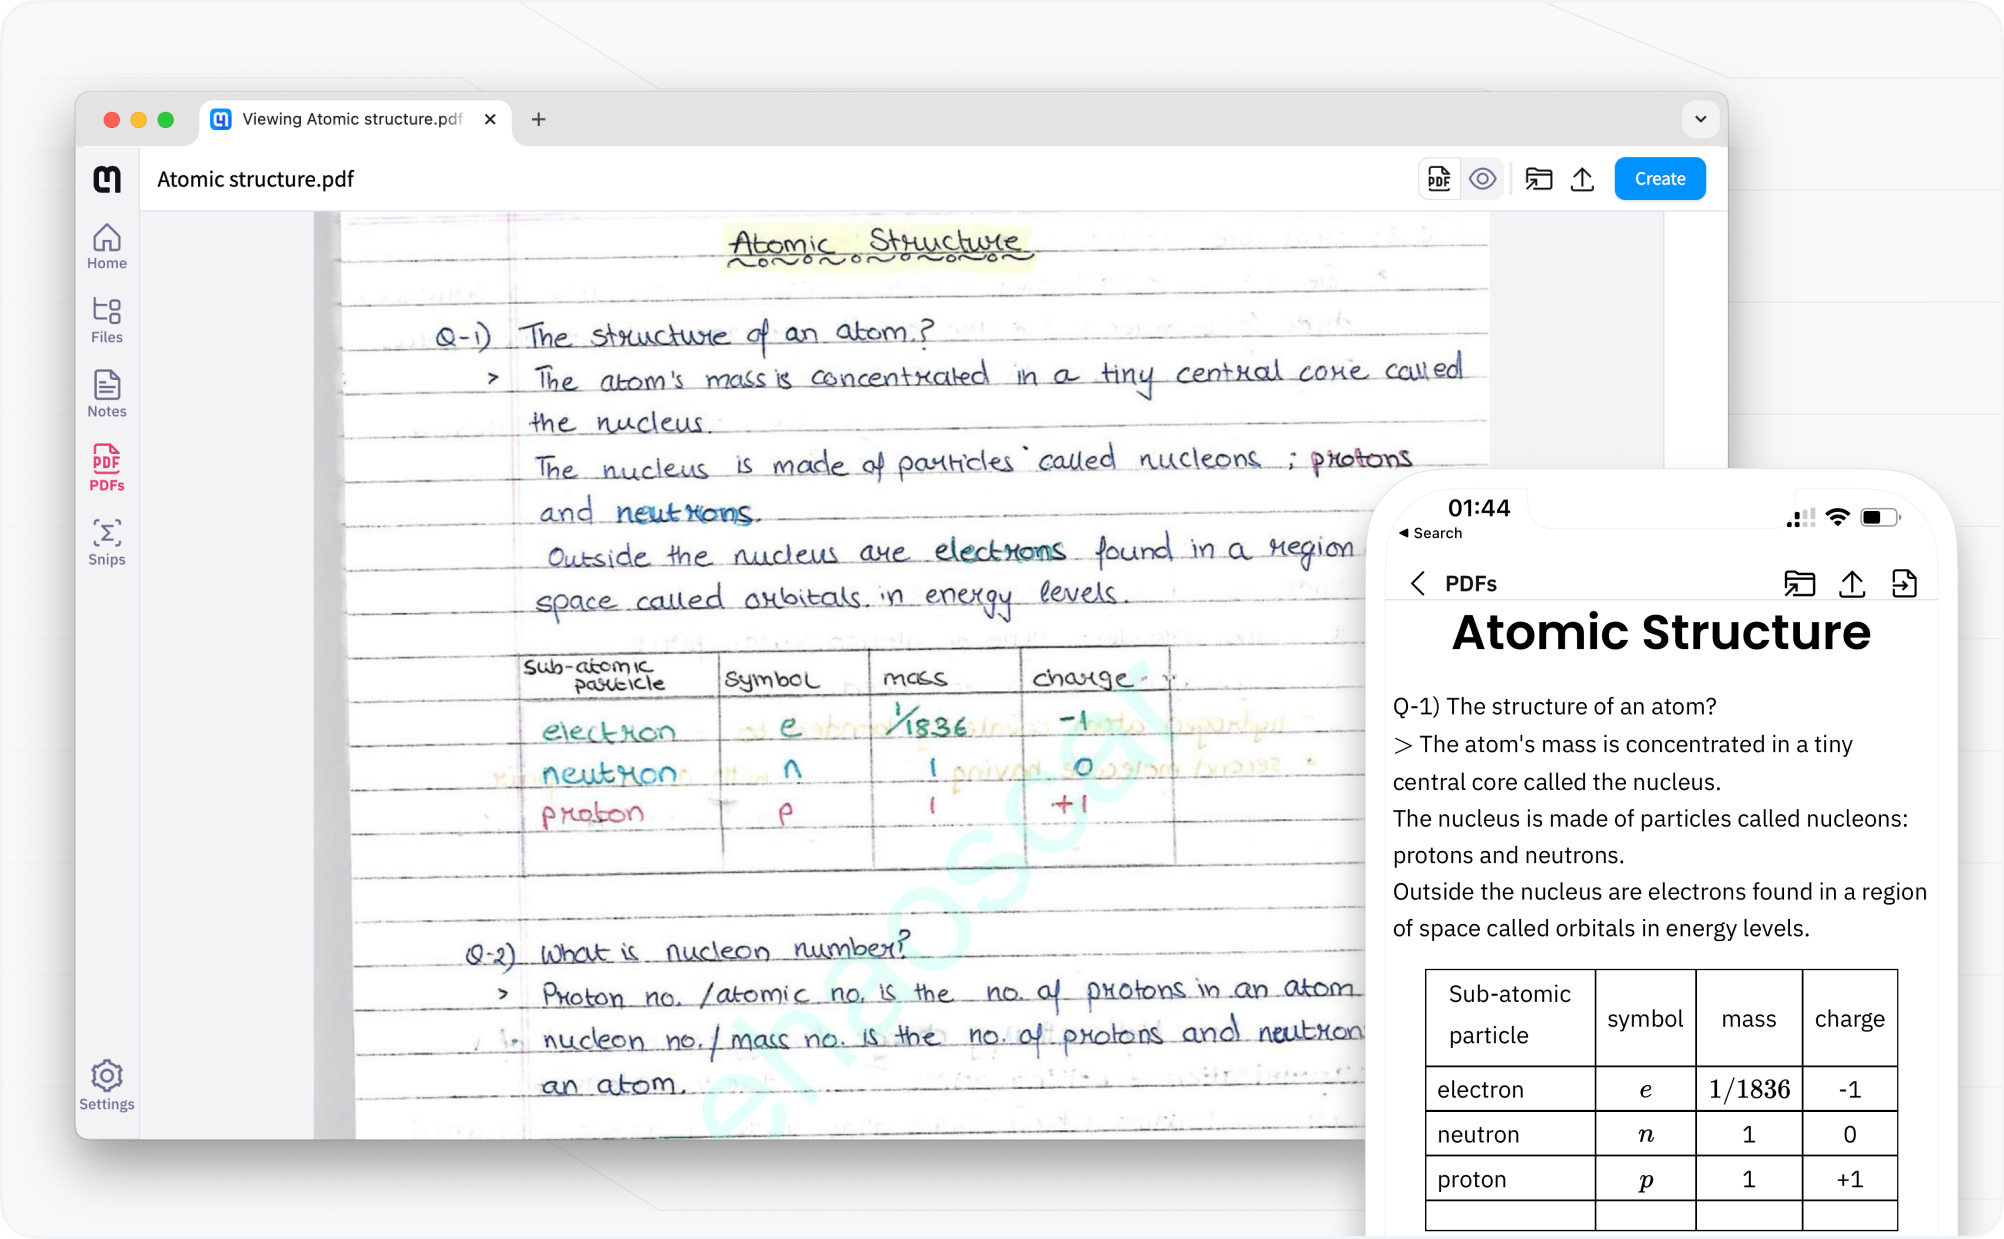 Viewing Atomic structure.pdf
Atomic structure.pdf
PDF
Create
Home
Files
Notes
PDF
PDFs
Snips
Settings
Atomic Structure
Q-1) The structure of an atom.?
> The atom's mass is concentrated in a tiny central core called
the nucleus.
The nucleus is made of particles called nucleons ; protons
and neutrons.
Outside the nucleus are electrons found in a region
space called orbitals in energy levels.
Sub-atomic particle symbol mass charge
electron e 1/1836 -1
neutron n 1 0
proton p 1 +1
Q-2) What is nucleon number?
> Proton no. /atomic no. is the no. of protons in an atom
nucleon no./ mass no. is the no. of protons and neutron
an atom.
01:44
Search
PDFs
Atomic Structure
Q-1) The structure of an atom?
> The atom's mass is concentrated in a tiny
central core called the nucleus.
The nucleus is made of particles called nucleons:
protons and neutrons.
Outside the nucleus are electrons found in a region
of space called orbitals in energy levels.
Sub-atomic particle symbol mass charge
electron e 1/1836 -1
neutron n 1 0
proton p 1 +1